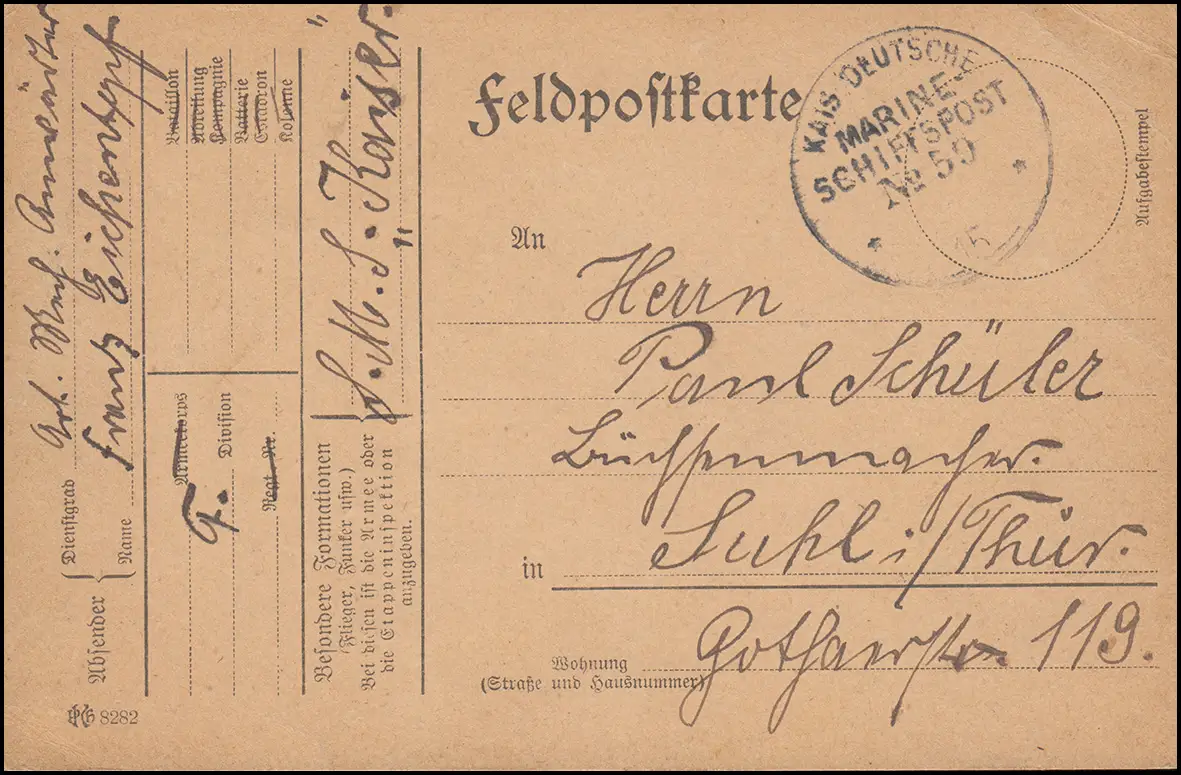 Feldpostkarte
KAIS DEUTSCHE
MARINE
SCHIFFSPOST
No 59
* *
15
Aufgabestempel
An
Herrn
Paul Schüler
Büchsenmacher.
in Suhl i/Thür.
Gothaerstr. 119.
Wohnung
(Straße und Hausnummer)
Absender
Dienstgrad
Name
Franz
Bataillon
Abteilung
Kompagnie
Batterie
Eskadron
Kolonne
Armeekorps
Division
Regt. Nr.
Besondere Formationen
(Flieger, Funker usw.)
Bei diesen ist die Armee oder
die Etappeninspektion
anzugeben.
S.M.S. „Kaiser"
8282